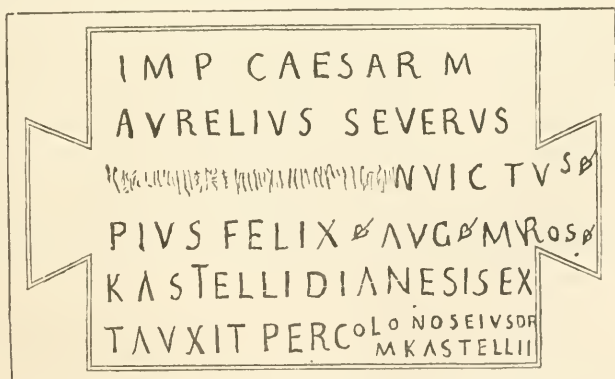 IMP CAESAR M
AVRELIVS SEVERVS
NVICTVS
PIVS FELIX AVG MVROS
KASTELLI DIANESIS EX
TAVXIT PERCOLONOSEIVSDR
MKASTELLII